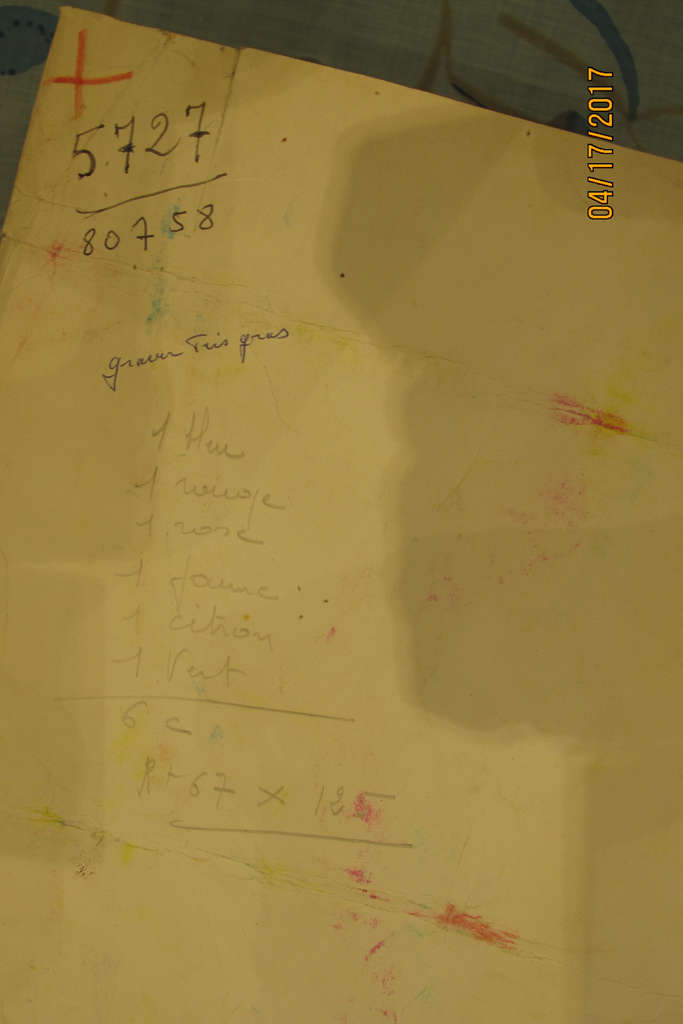 5727
80758
graver Très gras
1 bleu
1 rouge
1 rose
1 jaune
1 citron
1 Vert
6 c
67 × 125
04/17/2017